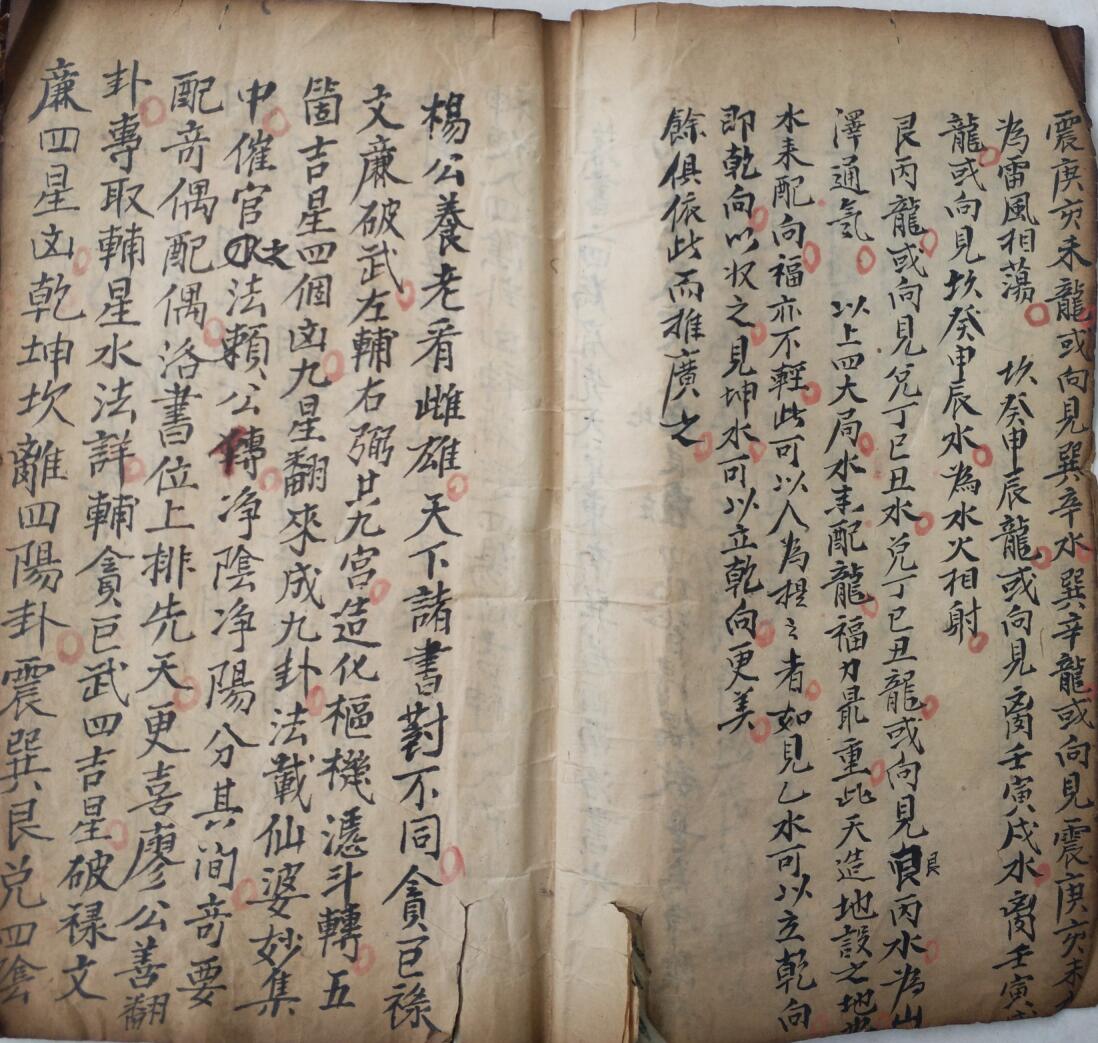 震庚亥未龍或向見巽辛水巽辛龍或向見震庚亥未
為雷風相蕩 坎癸申辰龍或向見离壬寅戌水离壬寅
龍或向見坎癸申辰水為水火相射
艮丙龍或向見兌丁巳丑水兌丁巳丑龍或向見艮丙水為山
澤通氣 以上四大局水耒配龍福力最重此天造地設之地
水耒配向福亦不輕此可以人為揑之者如見乙水可以立乾向
即乾向以收之見坤水可以立乾向更美
餘俱依此而推廣之
楊公養老看雌雄天下諸書對不同貪巨禄
文廉破武左輔右弼廿九宮造化樞機憑斗轉五
箇吉星四個凶九星翻來成九卦法載仙婆妙集
中催官之水法賴公傳净陰净陽分其洵竒要
配竒偶配偶洛書位上排先天更喜廖公善翻
卦專取輔星水法詳輔貪巨武四吉星破禄文
廉四星凶乾坤坎離四陽卦震巽艮兌四陰